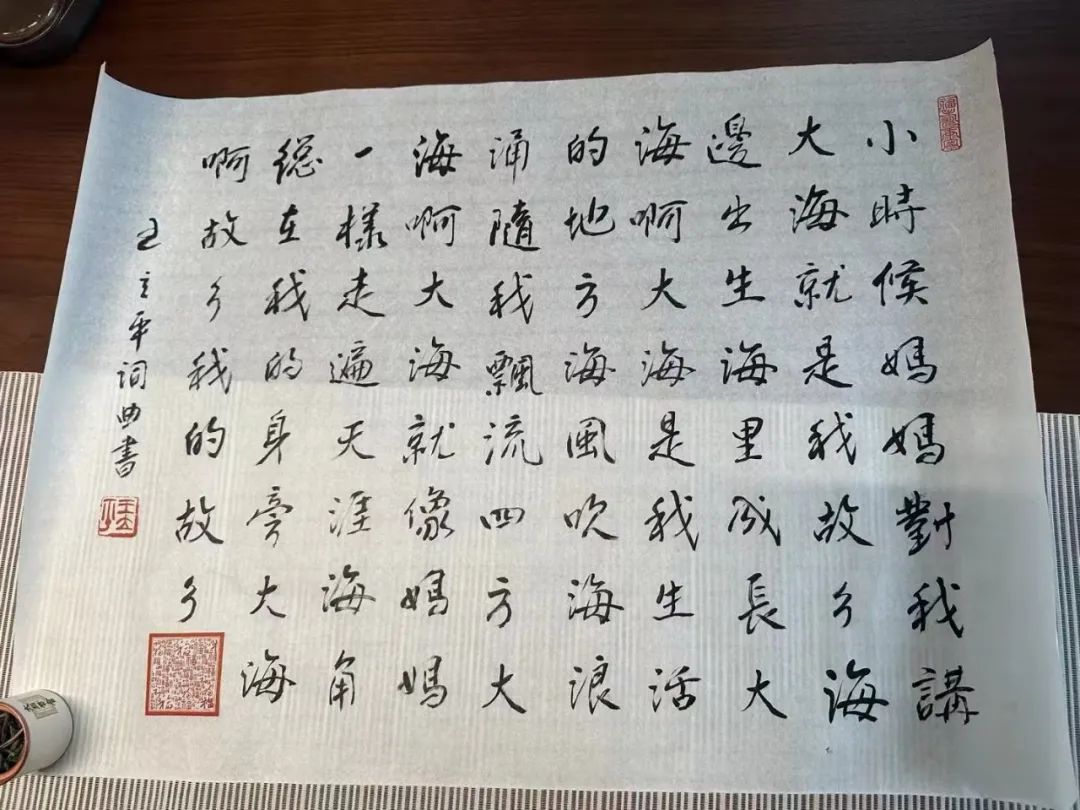 小時候媽媽對我講
大海就是我故乡海
邊出生海里成長大
海啊大海是我生活
的地方海風吹海浪
涌隨我飄流四方大
海啊大海就像媽媽
一樣走遍天涯海角
總在我的身旁大海
啊故乡我的故乡
王立平詞曲書